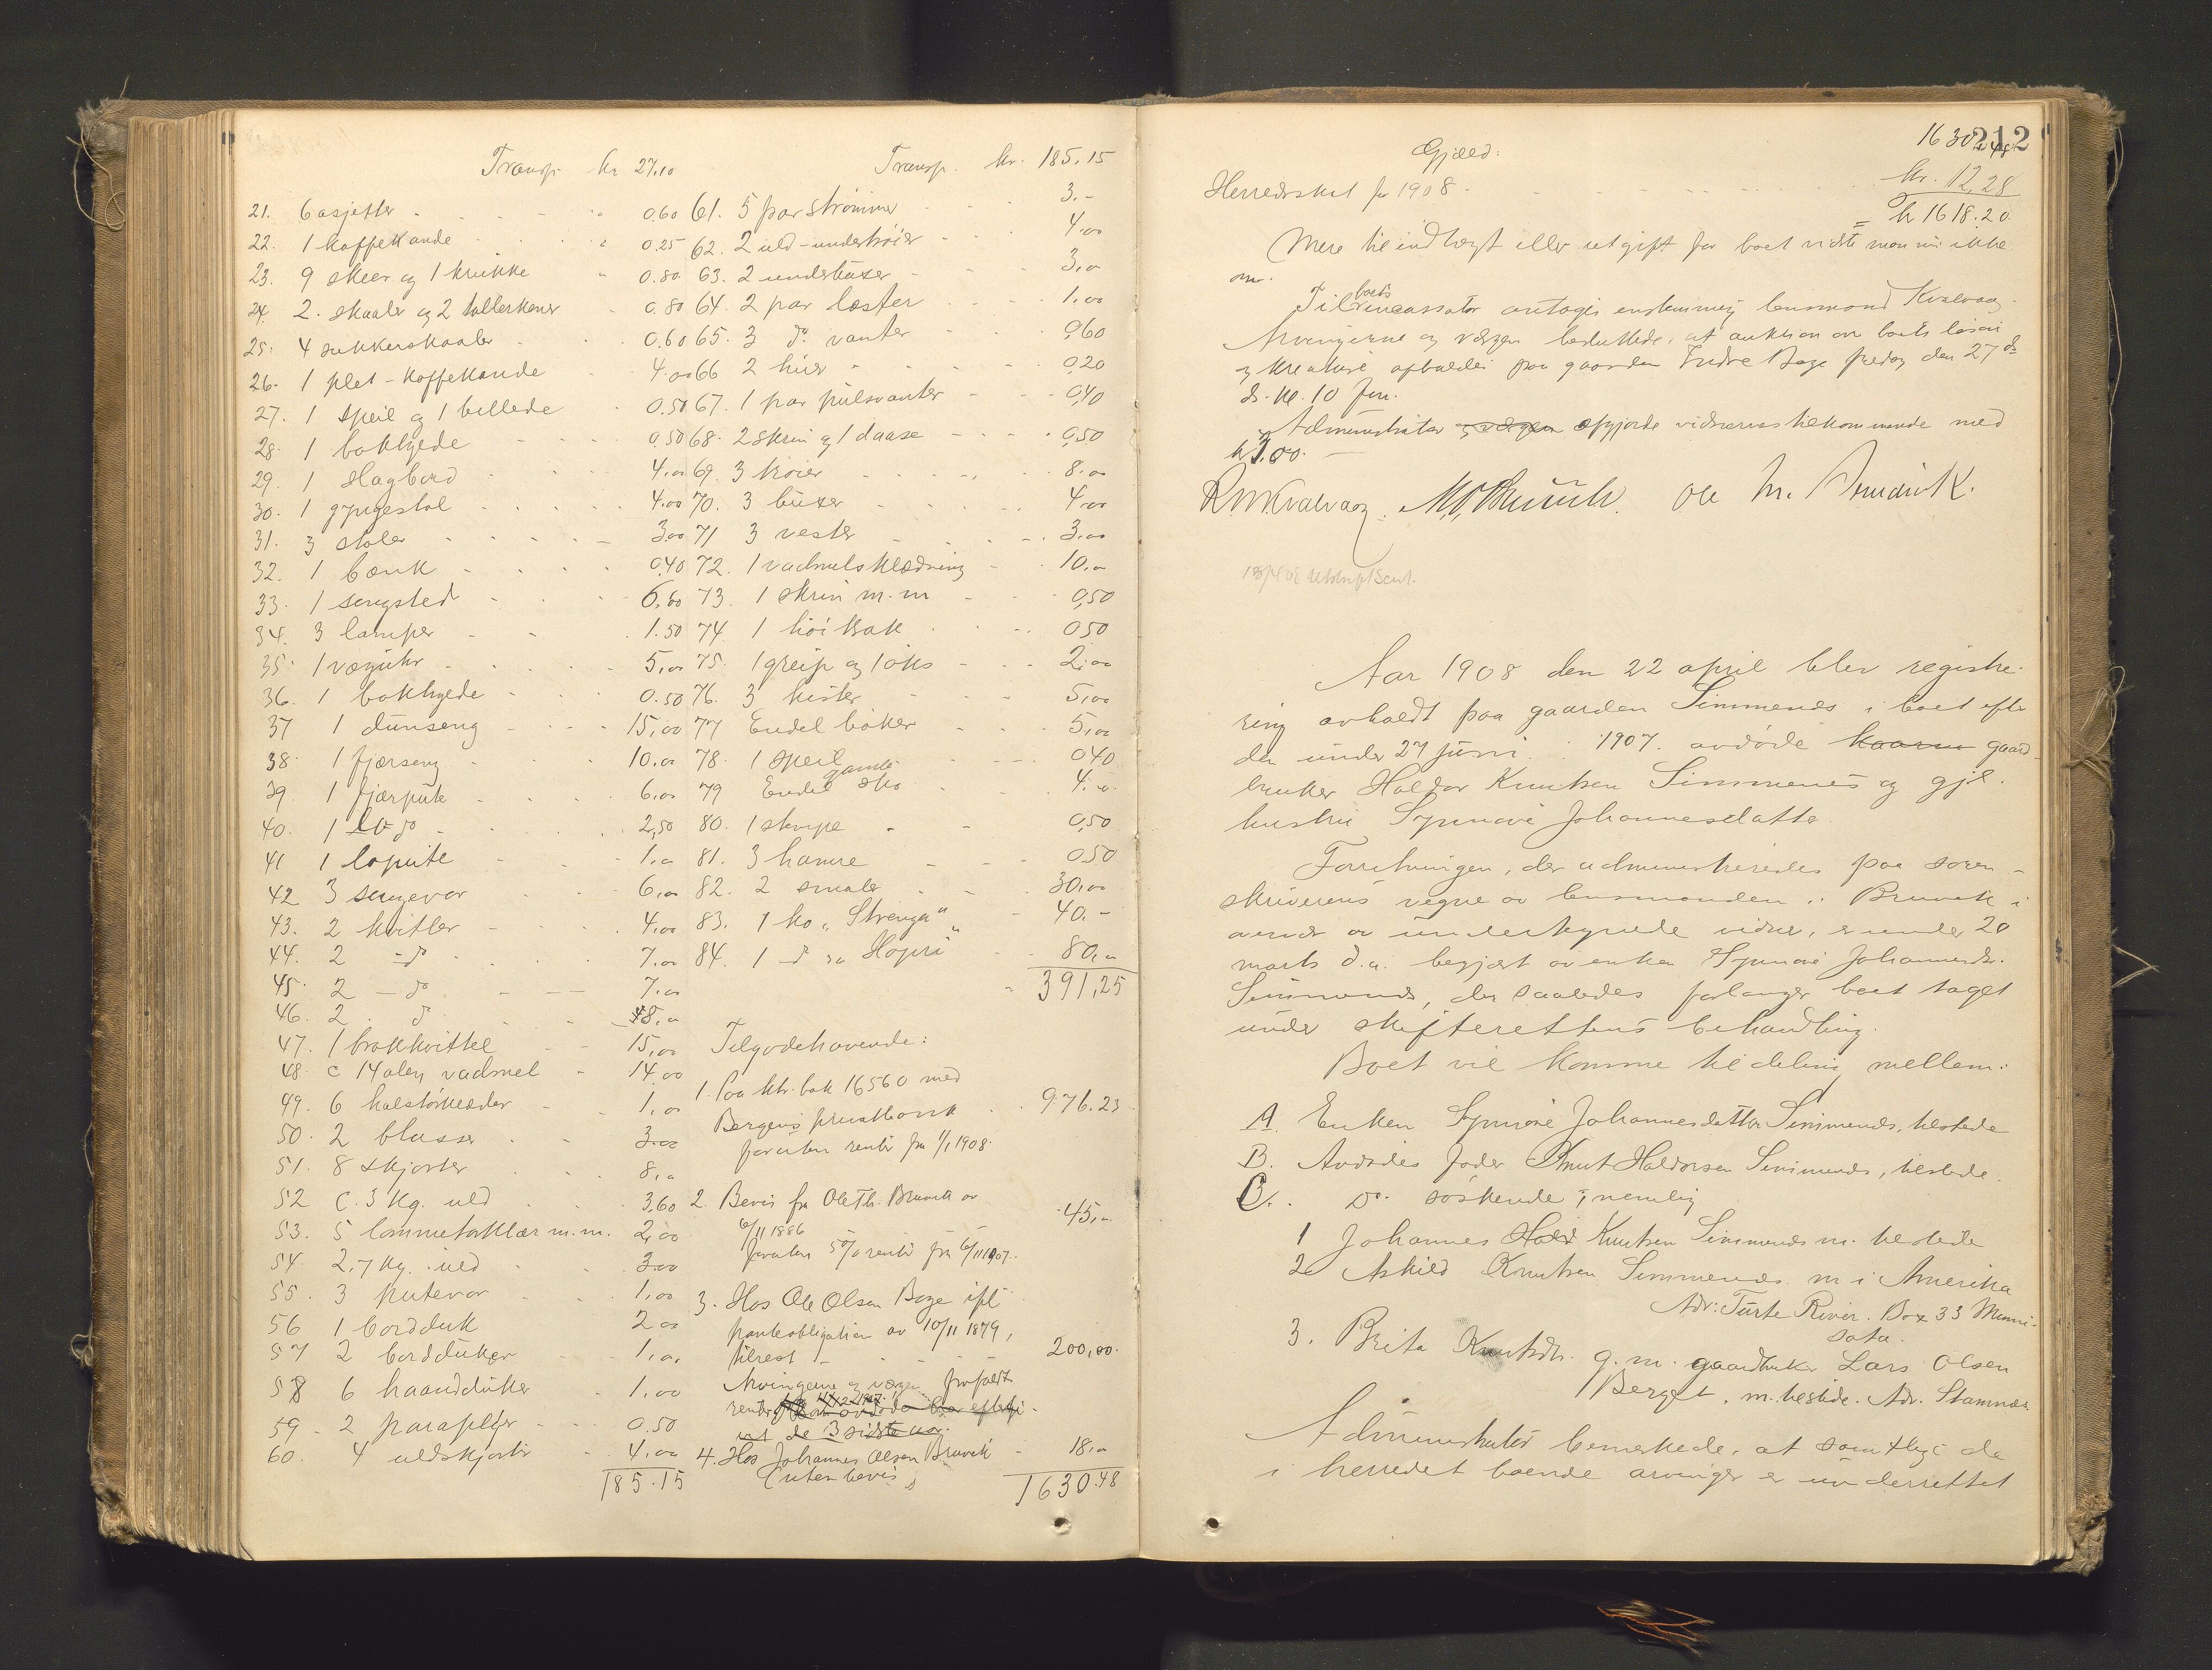 Transp. kr 27,10
21. 6 asjetter 0.60
22. 1 kaffekande 0.25
23. 9 skeer og 1 krukke 0.80
24. 2. skaaler og 2 tallerkener 0.80
25. 4 sukkerskaaler 0.60
26. 1 plet-kaffekande 4.00
27. 1 speil og 1 billede 0.50
28. 1 bokhylde 0,50
29. 1 slagbord 4.00
30. 1 gyngestol 4.00
31. 3 stoler 3.00
32. 1 bænk 0,40
33. 1 sengsted 6,00
34. 3 lamper 1.50
35. 1 væguhr 5,00
36. 1 bokhylde 0.50
37 1 dunseng 15,00
38. 1 fjærseng 10.00
39. 1 fjærpute 6,00
40. 1 do 2,50
41 1 loputte 1.00
42 3 sengevar 6,00
43. 2 kvitler 4,00
44. 2 - do 7.00
45. 2 - do 7.00
46. 2 do 8,00
47. 1 brokkvittel 15,00
48. c 14 alen vadmel 14.00
49. 6 halstørklæder 1,00
50. 2 blusser 3.00
51. 8 skjorter 8,00
52 c. 3 kg. uld 3,60
53. 5 lommetørklær m.m. 2,00
54 2,7 kg. uld 3.00
55. 3 putevar 1,00
56 1 bordduk 2.00
57 2 bordduker 1,00
58 6 haandduker 1,00
59. 2 paraplyer 0.50
60. 4 uldskjorter 4,00
185.15
Transp. kr. 185.15
61. 5 par strømmer 3.-
62. 2 uld-undertrøier 4.00
63. 2 underbukser 3,00
64. 2 par læster 1,00
65. 3 do vanter 0,60
66 2 huer 0,20
67. 1 par pulsvanter 0,40
68. 2 skrin og 1 daase 0,50
69. 3 trøier 8.00
70. 3 buxer 4.00
71 3 vester 3.00
72. 1 vadmelsklædning 10.00
73. 1 skrin m.m 0,50
74. 1 høisæk 0,50
75. 1 greip og 1 øks 2.00
76. 3 kister 5,00
77 Endel bøker 5,00
78. 1 speil 0,40
79 Endel gamle sko 4.00
80. 1 skrepe 0,50
81. 3 hamre 0,50
82. 2 smaler 30,00
83. 1 ko "Strenga" 40.-
84. 1 do "Hopri" 80,00
391,25
Tilgodehavende:
1. Paa ktr. bok 16560 med
Bergens privatbank 976.23
foruten renter fra 1/1 1908.
2. Bevis fra Ole Th. Bruvik av
6/11 1886 45,00
foruten 5% rente fra 6/11 1907.
3. Hos Ole Olsen Boge ifl
panteobligation av 10/11 1879,
tilrest 200,00.
Arvingerne og vergen frafaldt
renter
de 3 sidste aar.
4. Hos Johannes Olsen Bruvik 18,00
(uten bevis)
1630.48
212
1630.48
Gjæld:
Herredsskat for 1908. kr. 12,28
= kr 1618.20
Mere til indtægt eller utgift for boet vidste man nu ikke
om.
Til boets incassator antoges enstemmig lensmand Kvalvaag.
Arvingerne og vergen besluttede, at auktion over boets løsøre
og kreature avholdes paa gaarden Indre Boge fredag den 27 ds
ds. kl. 10 fm.
Administrator og vergen opgjorde vidnernes tilkommende med
kr 1.00.
R M Kvalvaag. M. O. Bruvik. Ole M.
18/4 08 Utskrift sent.
Aar 1908 den 22 april blev registre-
ring avholdt paa gaarden Simmenes i boet efter
den under 27 juni 1907. avdøde gaard-
bruker Haldor Knutsen Simmenes og gjl.
hustru Synnøve Johannesdatter.
Forretningen, der administreredes paa soren-
skriverens vegne av lensmanden i Bruvik i
nærvær av undertegnede vidner, er under 20
marts d.a. begjært av enken Synnøve Johannesdr.
Simmenes, der saaledes forlanger boet taget
under skifterettens behandling.
Boet vil komme til deling mellem:
A. Enken Synnøve Johannesdatter Simmenes, tilstede
B. Avdødes fader Knut Haldorsen Simmenes, tilstede.
C. Do. søskende, nemlig
1 Johannes Knutsen Simmenes m. tilstede
2 Askild Knutsen Simmenes m. i Amerika
Adr: Turte River. Box 33 Minni-
sota.
3. Brita Knutsdr. g. m. gaardbruker Lars Olsen
Berget, m. tilstede. Adr. Stamnes.
Administrator bemerkede, at samtlige de
i herredet boende arvinger er underrettet